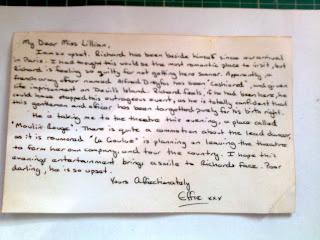 My Dear Miss Lillian,
I am so upset. Richard has been beside himself since our arrival
in Paris. I had thought this would be the most romantic place to visit, but
Richard is feeling so guilty for not getting here sooner. Apparently, a
french army officer named Alfred Dreyfus has been "Cashiered", and given
life imprisonment on Devil's Island. Richard feels, if he had been here, he
could have stopped this outrageous event, as he is totally confident that
this gentleman and officer has been targetted purely for his birth right.
He is taking me to the theatre this evening, a place called
"Moulin Rouge". There is quite a commotion about the lead dancer,
as it is rumoured "La Goulue" is planning on leaving the theatre
to form her own company, and tour the country. I hope this
evenings entertainment brings a smile to Richards face. Poor
darling, he is so upset.
Yours Affectionately
Effie xxx